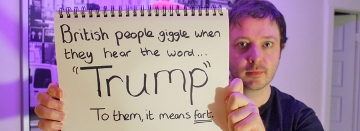 British people giggle when
they hear the word...
"Trump"
To them, it means fart.